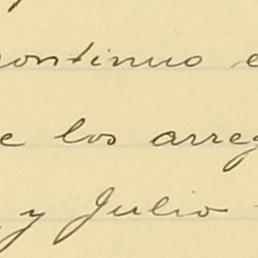 continuo
e los arreg
y Julio